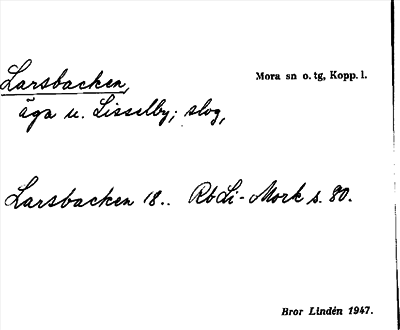 Larsbacken,
Mora sn o. tg, Kopp. l.
äga u. Lisselby; slog,
Larsbacken 18.. RbLi-Mork s. 80.
Bror Lindén 1947.